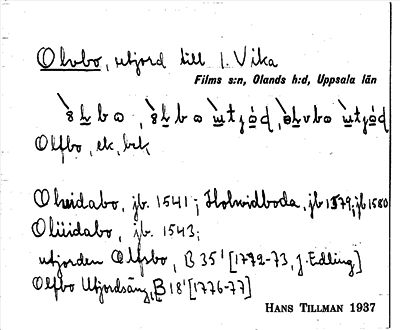 Olvbo, utjord till 1. Vika
Films s:n, Olands h:d, Uppsala län
Olfbo, ek, brk
Olweidabo, jb. 1541; Holwidboda, jb 1579; jb 1580
Olüidabo, jb. 1543;
utjorden Olfsbo, B 35¹ [1772-73, J. Edling]
Olfbo Utjordsäng, B 18¹ [1776-77]
HANS TILLMAN 1937